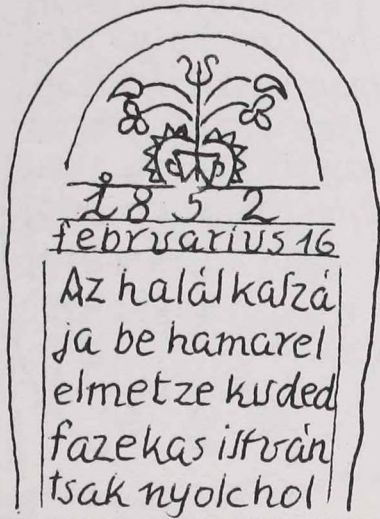 1852
februarius 16
Az halál kaſzá
ja be hamar el
elmetze kisded
fazekas iſtván
tsak nyolc hol